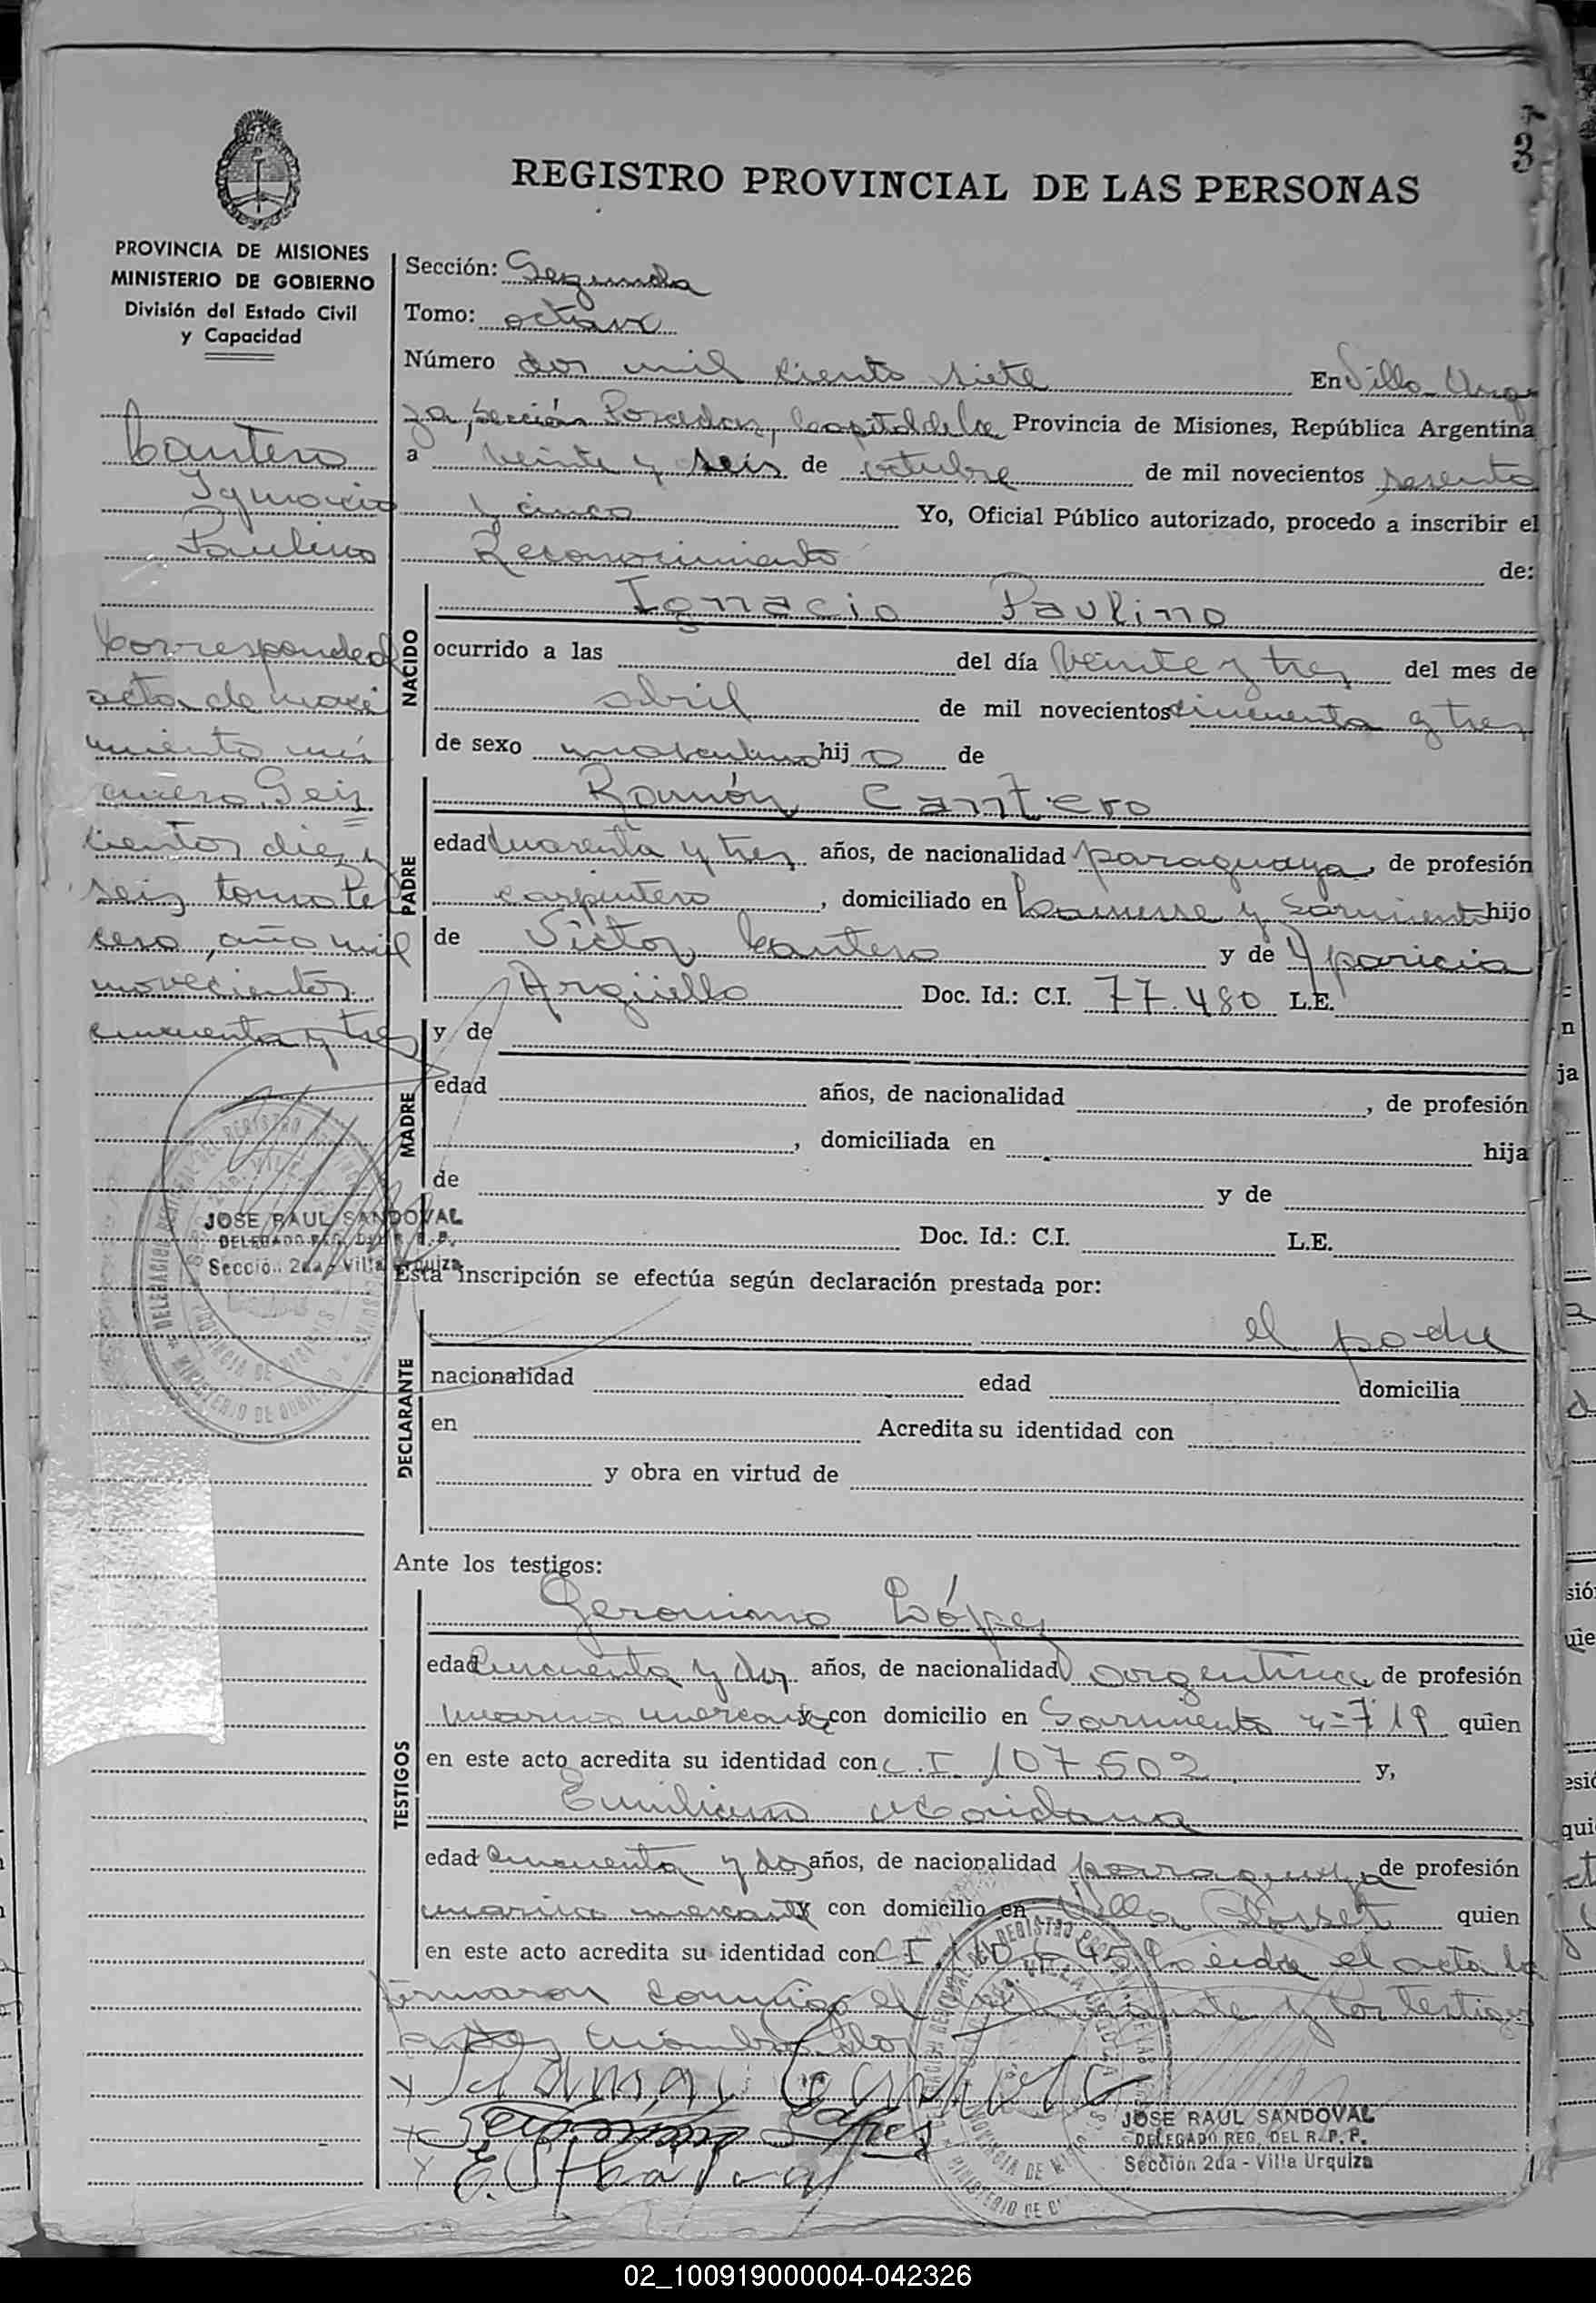 3
REGISTRO PROVINCIAL DE LAS PERSONAS
PROVINCIA DE MISIONES
MINISTERIO DE GOBIERNO
División del Estado Civil
y Capacidad
Cantero
Ignacio
Paulino
Corresponde al
acta de naci
miento nú
mero Seis
cientos diez y
seis tomo Ter
cero, año mil
novecientos
cincuenta y tres
JOSE RAUL SANDOVAL
DELEGADO REG. DEL R. P. P.
Sección 2da - Villa Urquiza
Sección: Segunda
Tomo: octavo
Número dos mil ciento siete En Villa Urqui
za, Sección Posadas, Capital de la Provincia de Misiones, República Argentina
a veinte y seis de octubre de mil novecientos sesenta
y cinco Yo, Oficial Público autorizado, procedo a inscribir el
Reconocimiento de:
NACIDO
Ignacio Paulino
ocurrido a las del día veinte y tres del mes de
abril de mil novecientos cincuenta y tres
de sexo masculino hij o de
PADRE
Ramón Cantero
edad cuarenta y tres años, de nacionalidad paraguaya, de profesión
carpintero, domiciliado en y Sarmiento hijo
de Victor Cantero y de Aparicia
Argüello Doc. Id.: C.I. 77.480 L.E.
MADRE
y de
edad años, de nacionalidad , de profesión
, domiciliada en hija
de y de
Doc. Id.: C.I. L.E.
Esta inscripción se efectúa según declaración prestada por:
DECLARANTE
el padre
nacionalidad edad domicilia
en Acredita su identidad con
y obra en virtud de
Ante los testigos:
TESTIGOS
Geronimo López
edad cincuenta y dos años, de nacionalidad argentina, de profesión
marino mercante y con domicilio en Sarmiento n=719 quien
en este acto acredita su identidad con C.I. 107.502 y,
Emiliano
edad cincuenta y dos años, de nacionalidad paraguaya de profesión
marino mercante y con domicilio en Villa quien
en este acto acredita su identidad con C.I. Leida el acta la
firmaron conmigo el y los testigos
antes nombrados
JOSE RAUL SANDOVAL
DELEGADO REG. DEL R. P. P.
Sección 2da - Villa Urquiza
02_100919000004-042326